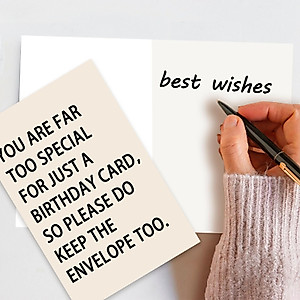 best wishes
YOU ARE FAR
TOO SPECIAL
FOR JUST A
BIRTHDAY CARD,
SO PLEASE DO
KEEP THE
ENVELOPE TOO.